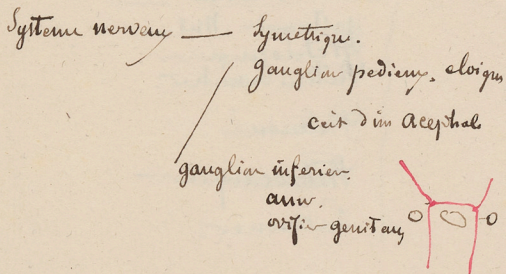 Systeme nerveux — Symetrique.
ganglion pedieux. eloigné
ganglion inferieur.
anus.
orifice genitaux